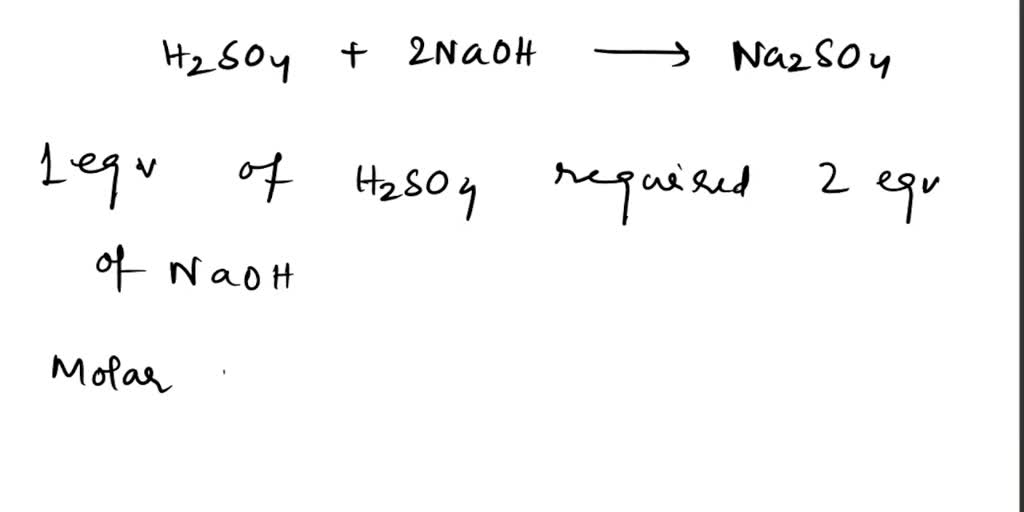 H₂SO₄ + 2NaOH ⟶ Na₂SO₄
1eqv of H₂SO₄ required 2 eqv
of NaOH
Molar